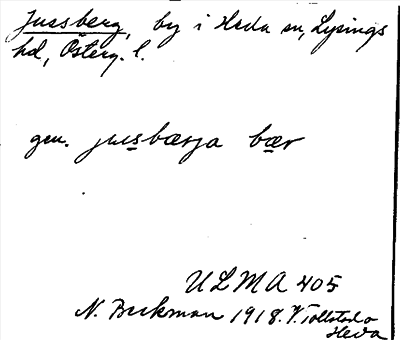 Jussberg, by i Heda sn, Lysings
hd, Österg. l.
gen. jussbærja bær
ULMA 405
N. Beckman 1918. V. Tollstad o
Heda